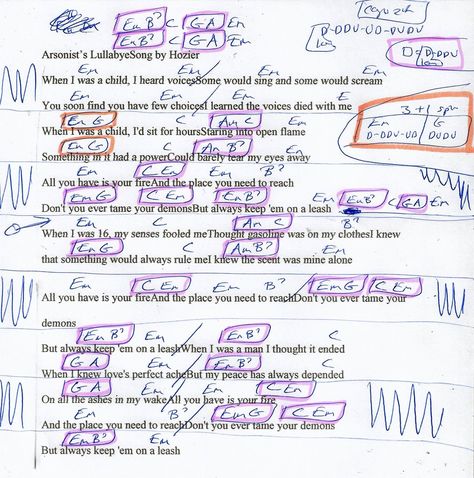 Em B7 C G A Em
Capo 2nd
D-DDU-UD-DUDU
Em B7 C G A Em
Arsonist's LullabyeSong by Hozier
D = D-DDU
Em C Em
When I was a child, I heard voicesSome would sing and some would scream
Em C Em E
You soon find you have few choicesI learned the voices died with me
3 + 1
Em G C Am C
Em G
When I was a child, I'd sit for hoursStaring into open flame
D-DDU-UD DUDU
Em G C Am B7
Something in it had a powerCould barely tear my eyes away
Em C Em Em B7
All you have is your fireAnd the place you need to reach
Em G C Em Em B7 Em Em B7 C G A Em
Don't you ever tame your demonsBut always keep 'em on a leash
Em C Am C B7
When I was 16, my senses fooled meThought gasoline was on my clothesI knew
Em G C Am B7 Em
that something would always rule meI knew the scent was mine alone
Em C Em Em B7 Em G C Em
All you have is your fireAnd the place you need to reachDon't you ever tame your
demons
Em B7 Em Em B7 C
But always keep 'em on a leashWhen I was a man I thought it ended
G A Em Em B7 C
When I knew love's perfect acheBut my peace has always depended
G A Em Em C Em
On all the ashes in my wakeAll you have is your fire
Em B7 Em G C Em
And the place you need to reachDon't you ever tame your demons
Em B7 Em
But always keep 'em on a leash